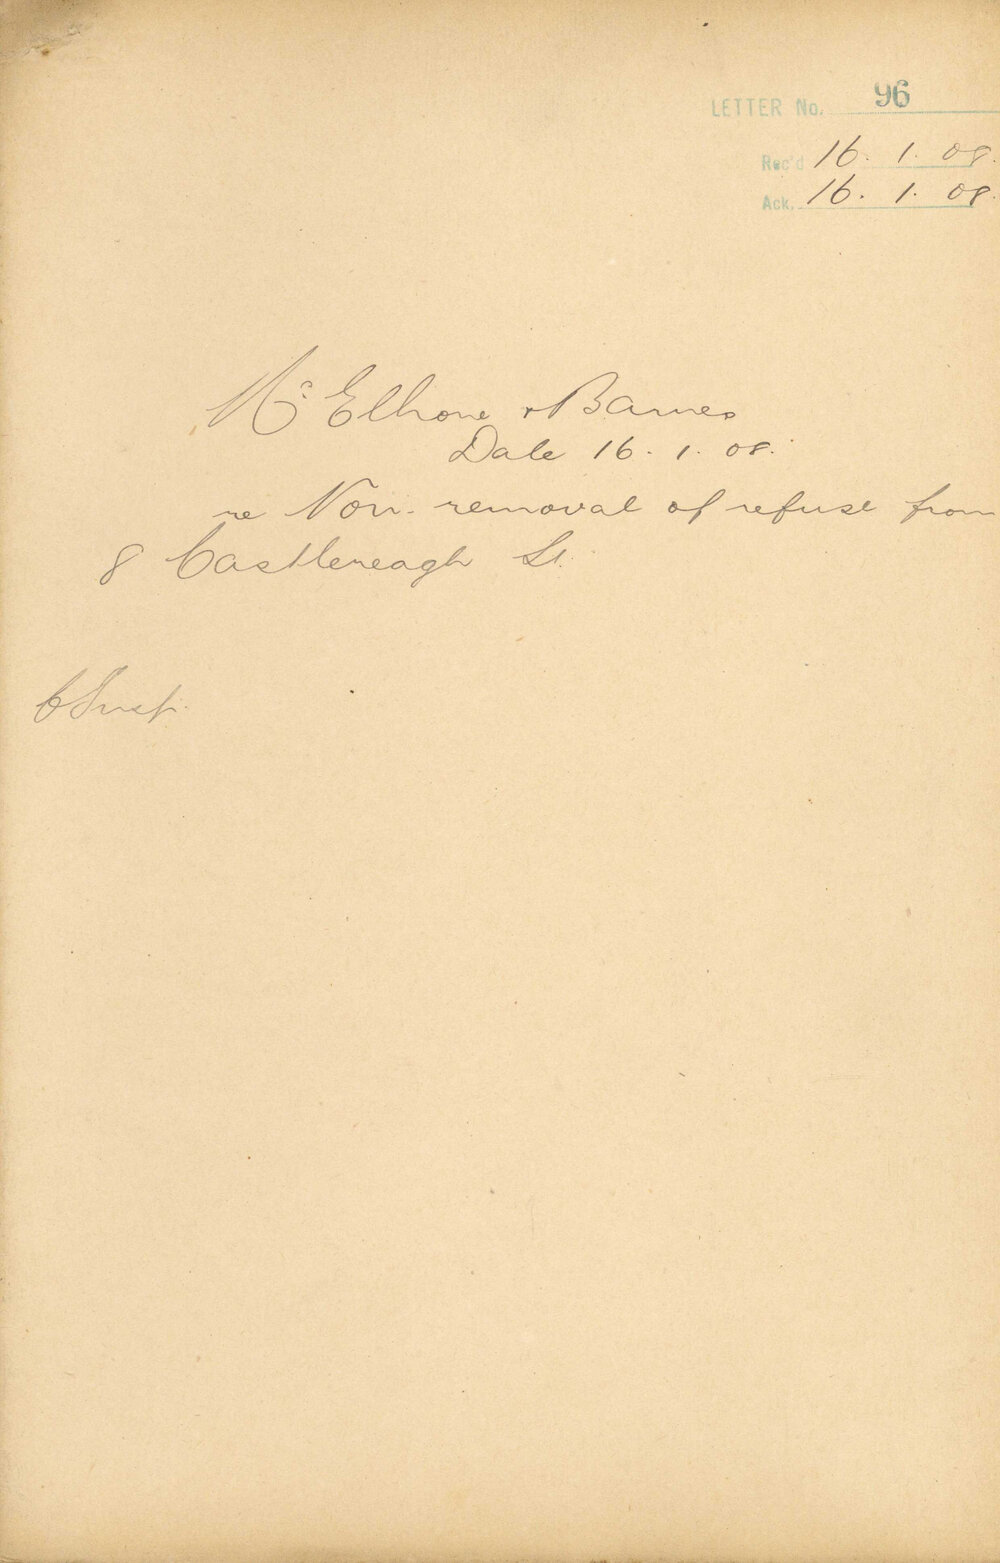 LETTER No. 96
Rec'd 16. 1. 08.
Ack. 16. 1. 08.
McElhone & Barnes
Date 16. 1. 08.
re Non-removal of refuse from
8 Castlereagh St.
C Insp.